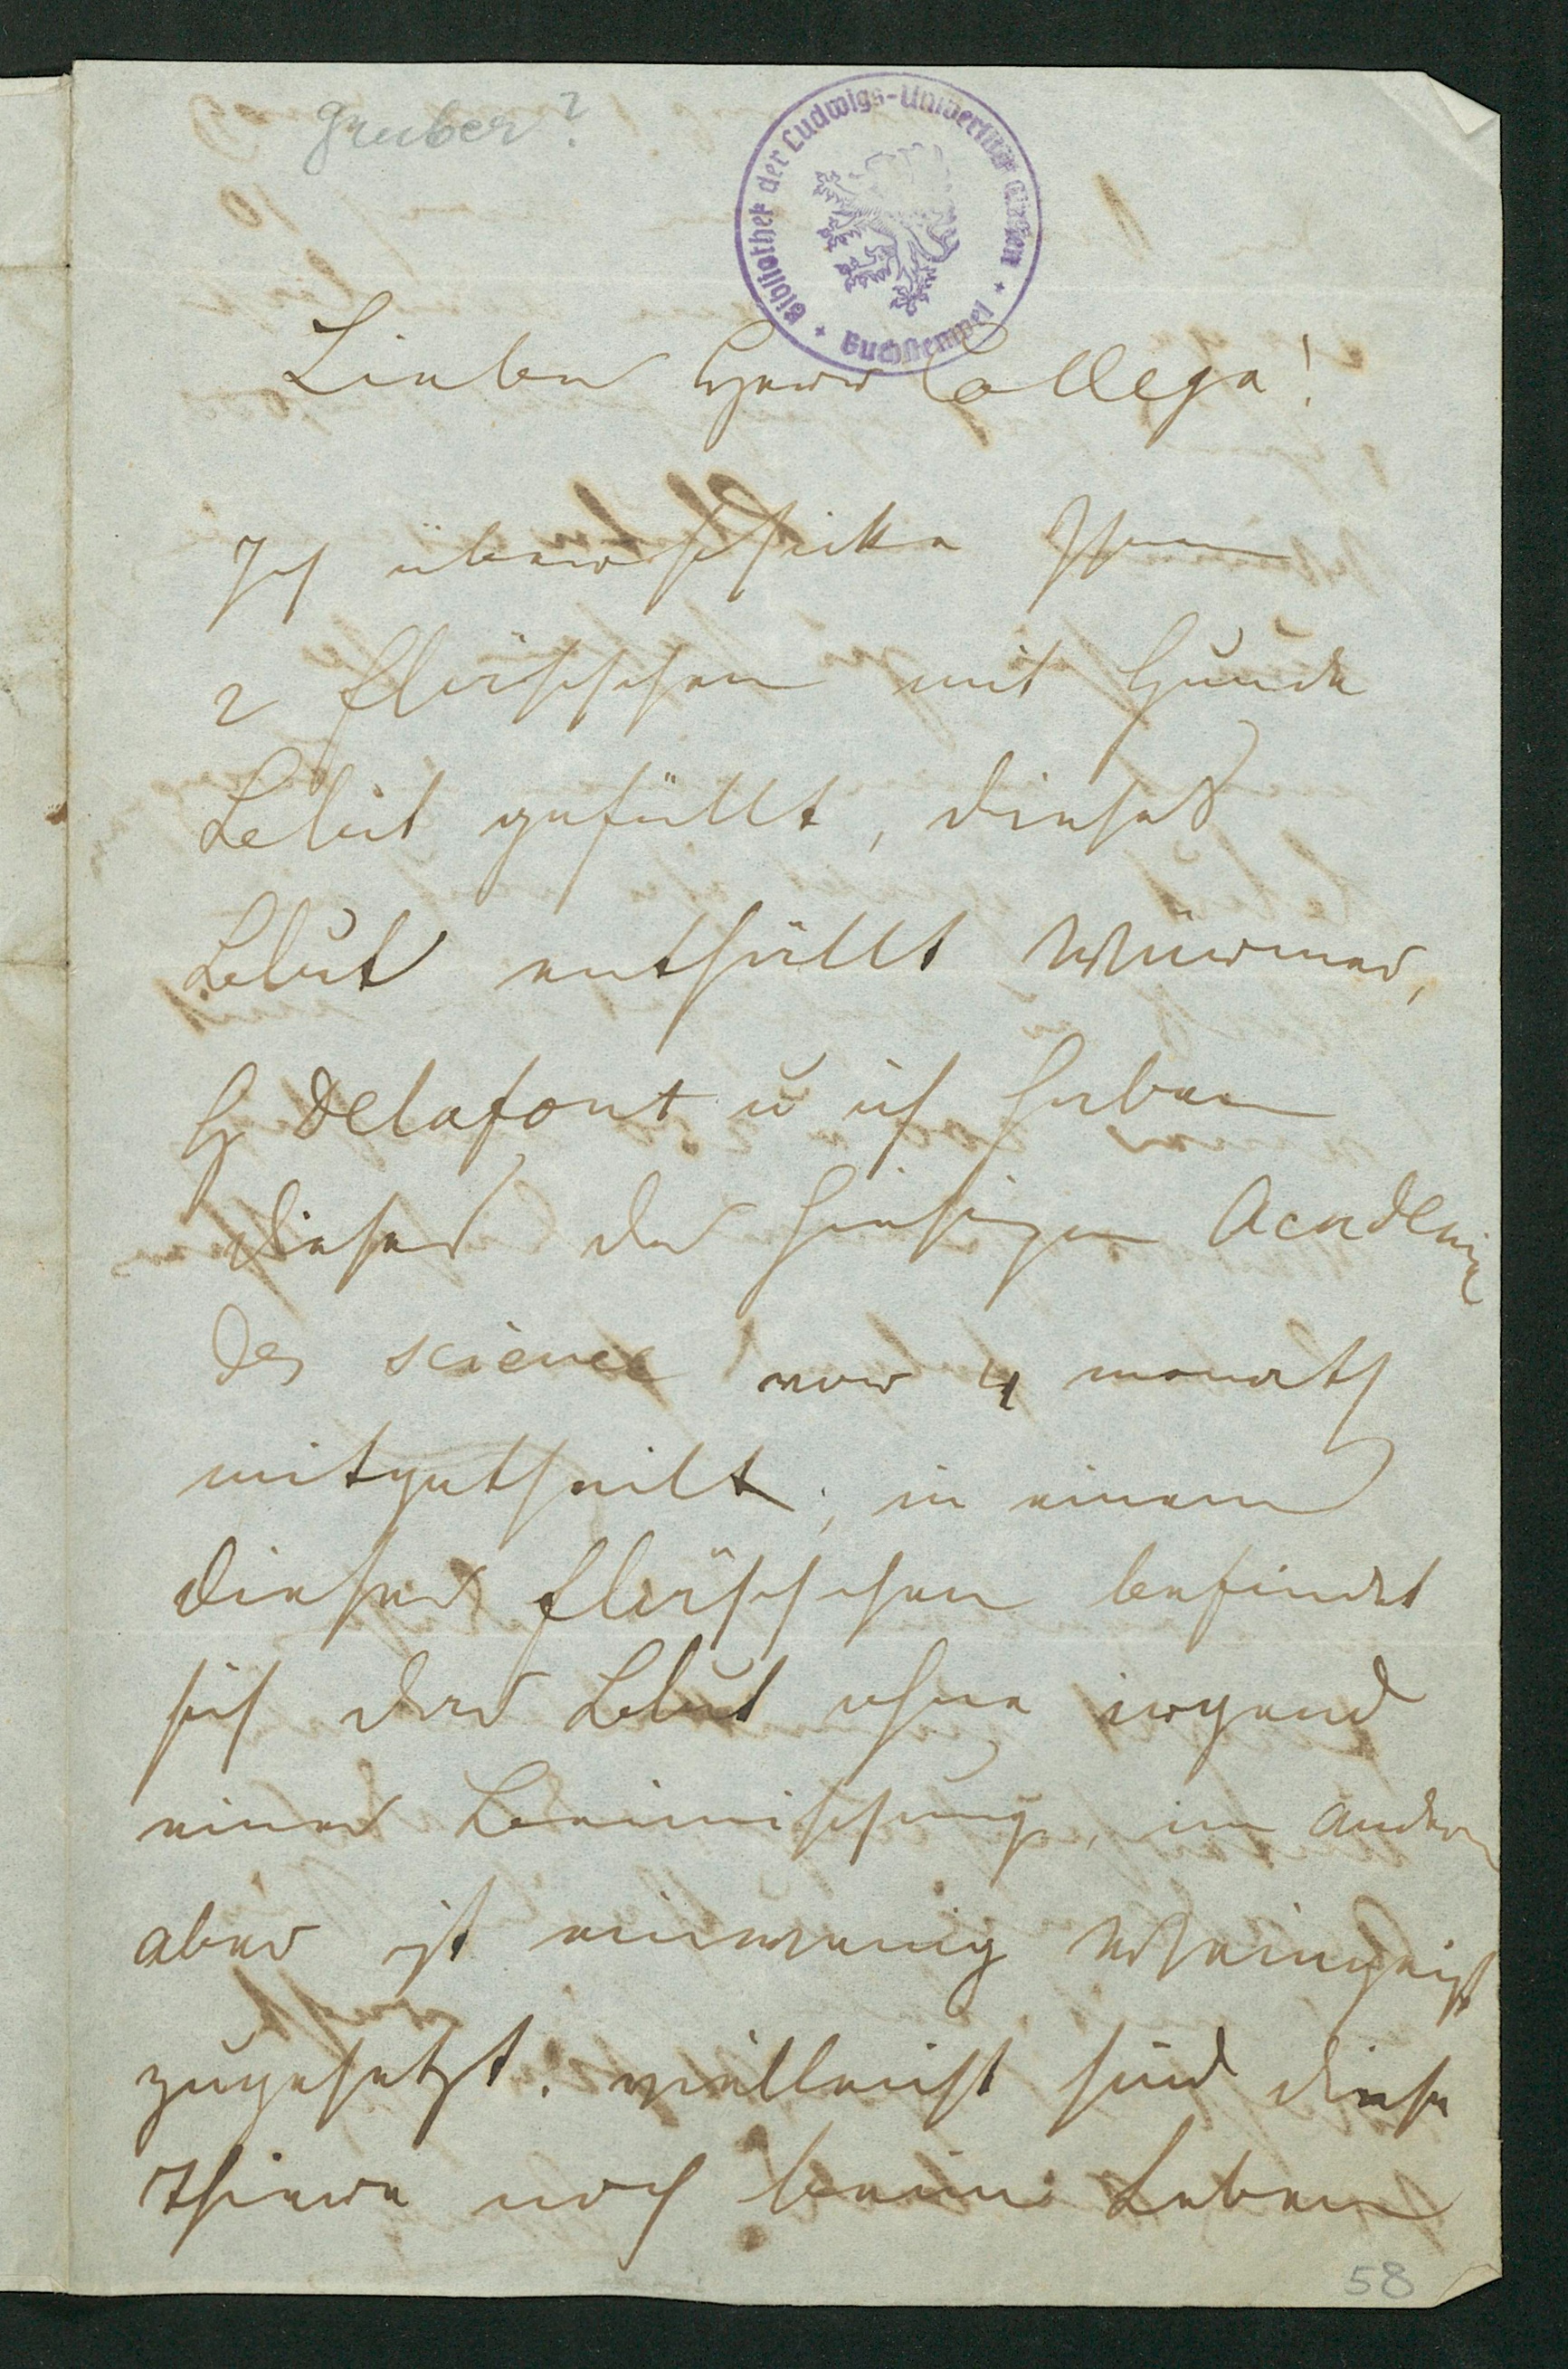 Gruber?
Bibliothek der Ludwigs-Universität Giessen
Buchstempel
Lieber Herr Collega!
Ich überschikke Ihnen
2 fläschchen mit Hunde
Blut gefüllt, dieses
Blut enthällt Würmer,
H Delafont u ich haben
dieses der hiesigen Academie
des science vor 4 monath
mitgetheilt, in einem
dieser fläschchen befindet
sich das Blut ohne irgend
einer Beimischung, im andern
aber ist einwenig Weingeist
zugesetzt. vielleicht sind diese
Thiere noch beim Leben
58